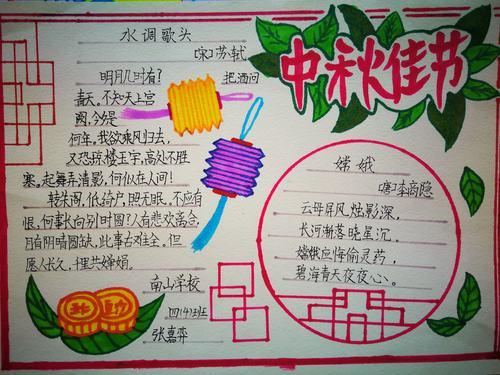 中秋佳节
水调歌头
(宋)苏轼
明月几时有? 把酒问
青天。不知天上宫
阙,今夕是
何年。我欲乘风归去,
又恐琼楼玉宇,高处不胜
寒。起舞弄清影,何似在人间!
转朱阁,低绮户,照无眠。不应有
恨,何事长向别时圆?人有悲欢离合,
月有阴晴圆缺,此事古难全。但
愿人长久,千里共婵娟。
南山学校
四(4)班
张嘉弈
嫦娥
(唐)李商隐
云母屏风烛影深,
长河渐落晓星沉。
嫦娥应悔偷灵药,
碧海青天夜夜心。